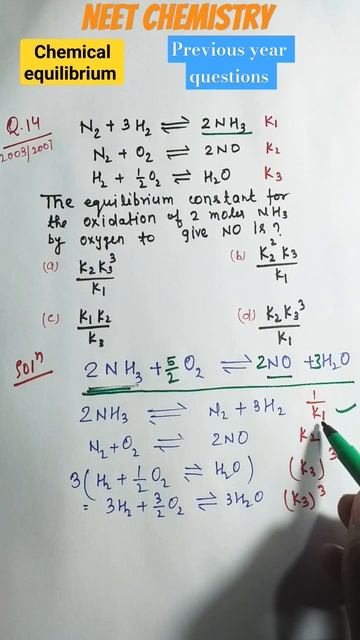 NEET CHEMISTRY
Chemical equilibrium
Previous year questions
Q.14
2003/2007
N₂ + 3H₂ ⇌ 2NH₃ K₁
N₂ + O₂ ⇌ 2NO K₂
H₂ + ½O₂ ⇌ H₂O K₃
The equilibrium constant for
the oxidation of 2 moles NH₃
by oxygen to give NO is?
(a) K₂K₃³/K₁ (b) K₂²K₃/K₁
(c) K₁K₂/K₃ (d) K₂K₃³/K₁
Solⁿ 2NH₃ + 5/2 O₂ ⇌ 2NO + 3H₂O
2NH₃ ⇌ N₂ + 3H₂ 1/K₁ ✓
N₂ + O₂ ⇌ 2NO K₂
3(H₂ + ½O₂ ⇌ H₂O) (K₃)³
= 3H₂ + 3/2 O₂ ⇌ 3H₂O (K₃)³